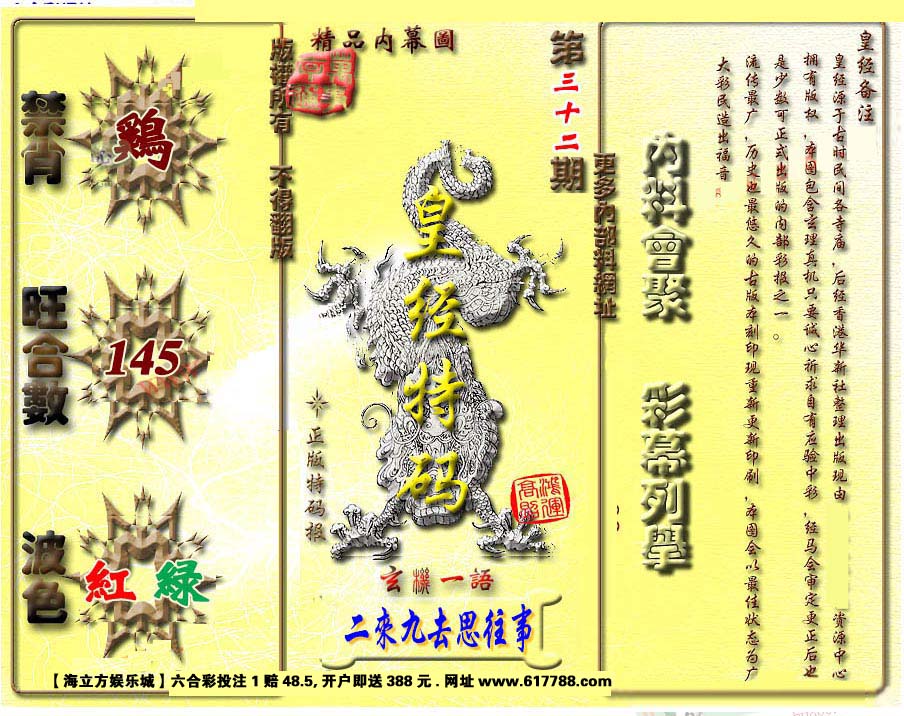 禁肖
鷄
旺合數
145
波色
紅 綠
版權所有 不得翻版
精品内幕圖
第三十二期
皇经特码
正版特码报
鴻運高照
玄機一語
二來九去思往事
更多内部料網址
内料會聚 彩幕列舉
皇经备注
皇经源于古时民间各寺庙，后经香港华新社整理出版现由 资源中心
拥有版权，本图包含玄理真机只要诚心祈求自有应验中彩，经马会审定更正后也
是少数可正式出版的内部彩报之一。
流传最广，历史也最悠久的古版本刻印现重新更新印刷，本图会以最佳状态为广
大彩民造出福音
【海立方娱乐城】六合彩投注1赔48.5,开户即送388元.网址www.617788.com